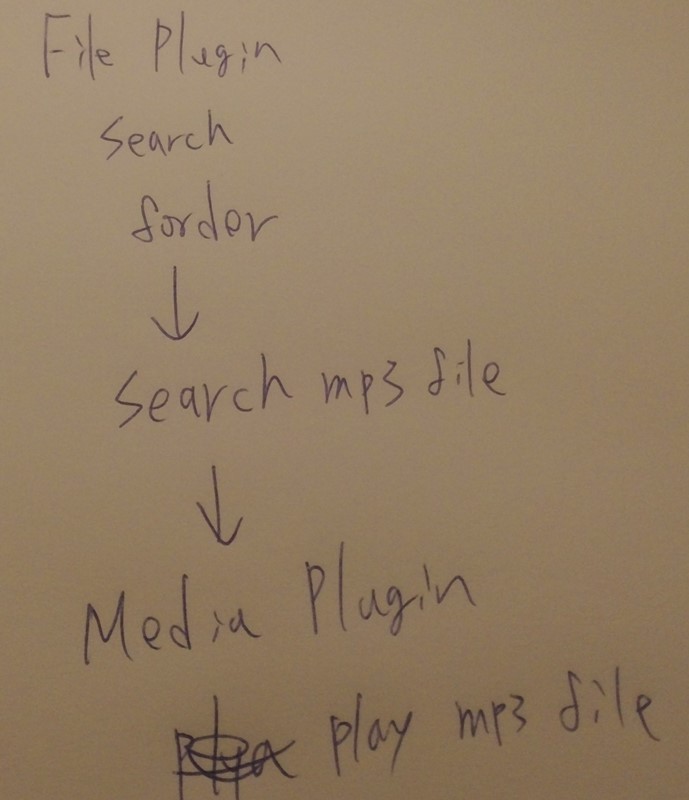 File Plugin
Search
forder
↓
Search mp3 file
↓
Media Plugin
play mp3 file